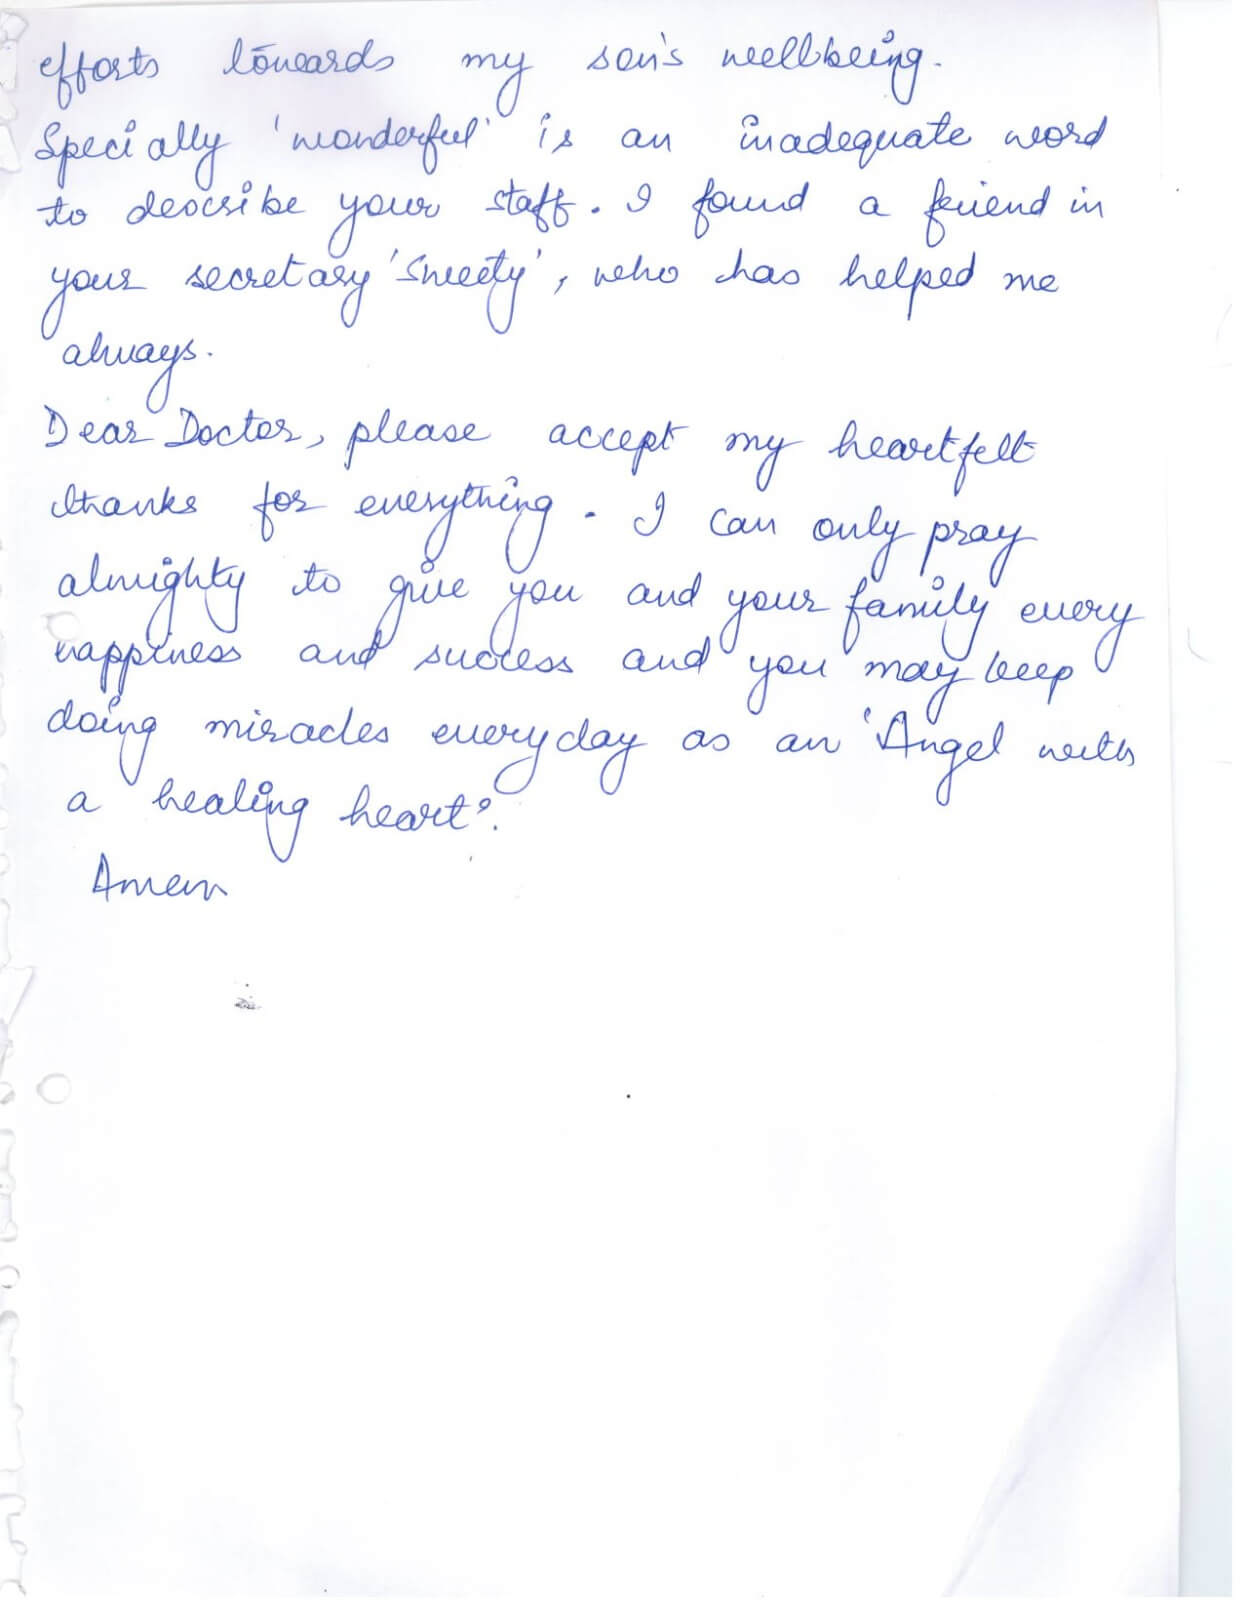 efforts towards my son's wellbeing.
Specially 'wonderful' is an inadequate word
to describe your staff. I found a friend in
your secretary 'Sweety', who has helped me
always.
Dear Doctor, please accept my heartfelt
thanks for everything. I can only pray
almighty to give you and your family every
happiness and success and you may keep
doing miracles everyday as an 'Angel with
a healing heart'.
Amen